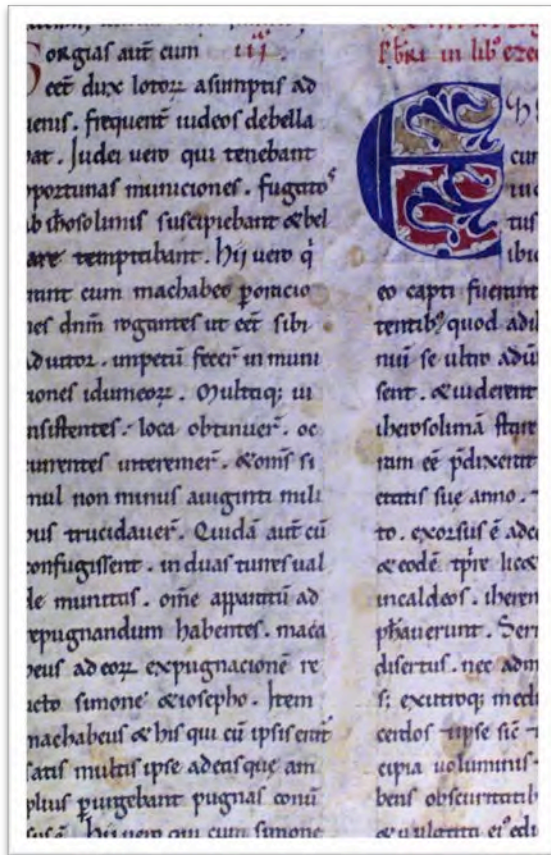 Gorgias aut̄ cum iij.
eēt dux locoꝝ asumptis ad
uenis. frequent̄ iudeos debella
bat. Judei uero qui tenebant
oportunas municiones. fugatoˢ
ab ih̄osolimis suscipiebant & bel
lare temptabant. hij uero q̇
erant cum machabeo p̲oracio
nes dn̄m rogantes ut eēt sibi
adiutor. impetū fecer̄ in muni
ciones idumeoꝝ. Multaq; ui
insistentes. loca obtinuer̄. oc
currentes interemer̄. & om̄s si
mul non minus a uiginti mili
bus trucidauer̄. Quidā aut̄ cū
confugissent. in duas turres ual
de munitas. om̄e apparatū ad
repugnandum habentes. maca
beus ad eoꝝ expugnacionē re
licto simone & iosepho. Item
machabeus & his qui cū ipsis erant̄
satis multis ipse ad eas que am
plius p̲urgebant pugnas conū
sus ē. hii uero qui cum simone
p̄bri in lib̊ eze
E
cum
tus
eo capti fuerunt
tentib; quod adi
nui se ultro adū
sent. & uiderent
iherosolimā stare
ram eē p̄dixerat
etatis sue anno.
to. exorsus ē ad c
& eodē tp̄re lic&
in caldeos. iherem
ph̄auerunt. Ser
disertus. nec adm
s; ex utroq; medi
cerdos ipse sic̄
cipia uoluminis
bens obscuritatib